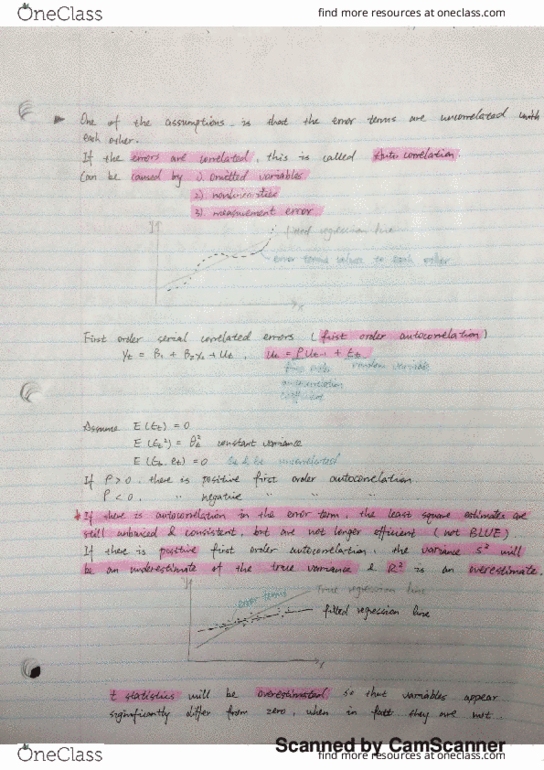 OneClass
find more resources at oneclass.com
▸ One of the assumptions is that the error terms are uncorrelated with
each other.
If the errors are correlated, this is called Auto correlation.
Can be caused by 1) omitted variables
2) nonlinearities
3) measurement error
Y
fitted regression line
error terms values to each other
x
First order serial correlated errors (first order autocorrelation)
Yt = B1 + B2Xt + Ut , Ut = ρUt-1 + Et
first order random variable
autocorrelation
coefficient
Assume E(Et) = 0
constant variance
uncorrelated
If ρ>0, there is positive first order autocorrelation.
ρ<0, " negative " "
* If there is autocorrelation in the error term, the least square estimates are
still unbiased & consistent, but are not longer efficient (not BLUE)
If there is positive first order autocorrelation, the variance s² will
be an underestimate of the true variance & R² is an overestimate.
Y
error terms
True regression line
fitted regression line
x
t statistics will be overestimated so that variables appear
significantly differ from zero, when in fact they are not.
Scanned by CamScanner
OneClass
find more resources at oneclass.com